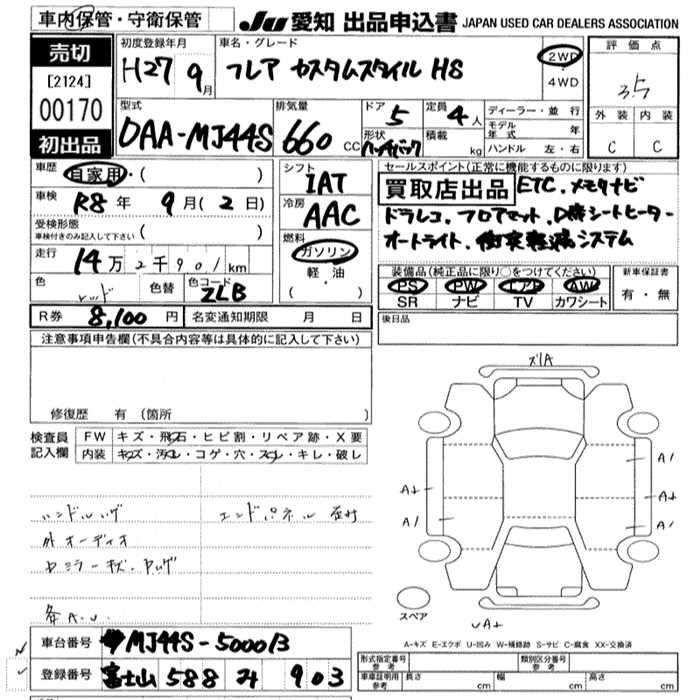 車内保管・守衛保管
JU 愛知 出品申込書 JAPAN USED CAR DEALERS ASSOCIATION
売切
[2124]
00170
初出品
初度登録年月
H27 9月
車名・グレード
フレア カスタムスタイル HS
2WD
・
4WD
評価点
3.5
外装 内装
C C
型式
DAA-MJ44S
排気量
660 CC
ドア 5
定員 4人
形状 ハッチバック
積載 kg
ディーラー・並行
モデル年式 年
ハンドル 左・右
車歴 自家用・( )
車検 R8年 9月(2日)
受検形態
車検付きのみ記入して下さい ( )
走行 14万2千901km
色 レッド 色替 色コード ZLB
シフト
IAT
冷房
AAC
燃料
ガソリン
軽・油
( ・ )
セールスポイント(正常に機能するものに限ります)
買取店出品 ETC.メモリナビ
ドラレコ.フロアマット.D席シートヒーター
オートライト.衝突軽減システム
装備品(純正品に限り○をつけてください)
PS PW エアB AW
SR ナビ TV カワシート
新車保証書
有・無
R券 8,100円 名変通知期限 月 日
後日品
注意事項申告欄(不具合内容等は具体的に記入して下さい)
修復歴 有(箇所 )
検査員記入欄
FW キズ・飛石・ヒビ割・リペア跡・X要
内装 キズ・汚れ・コゲ・穴・スレ・キレ・破レ
ハンドル ハゲ
エンドパネル
外オーディオ
各A.U.
ズリA
A1
A+
A+
A1
A1
スペア
A+
A-キズ E-エクボ U-凹み W-補修跡 S-サビ C-腐食 XX-交換済
車台番号 MJ44S-500013
登録番号 富士山 588 903
形式指定番号 参考
類別区分番号 参考
車庫証明用 参考 長さ cm 幅 cm 高さ cm